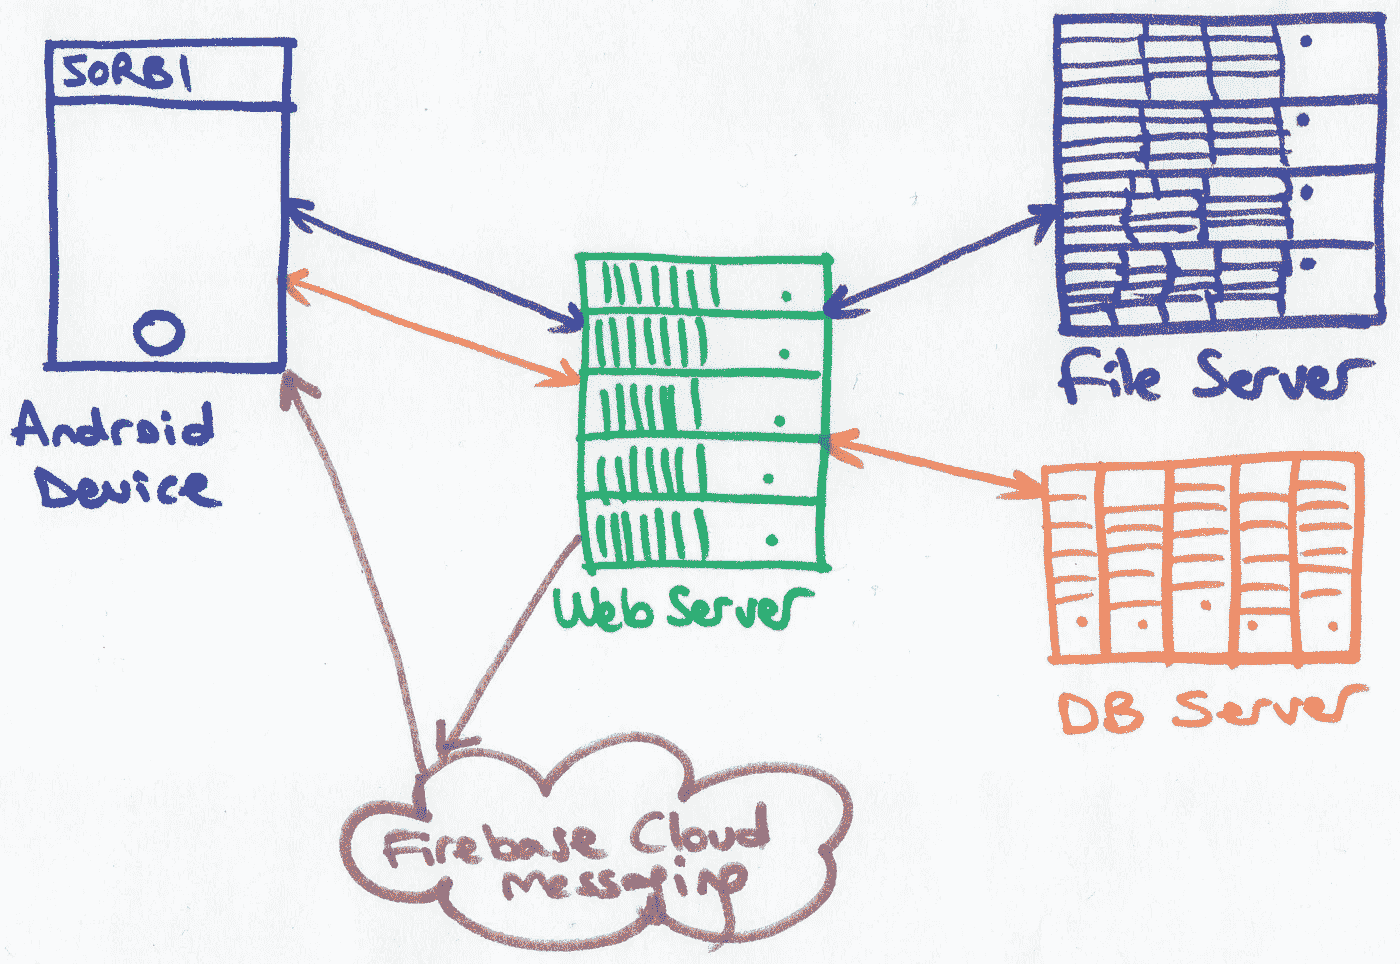 SORBI
Android
Device
File Server
Web Server
DB Server
Firebase Cloud
Messaging